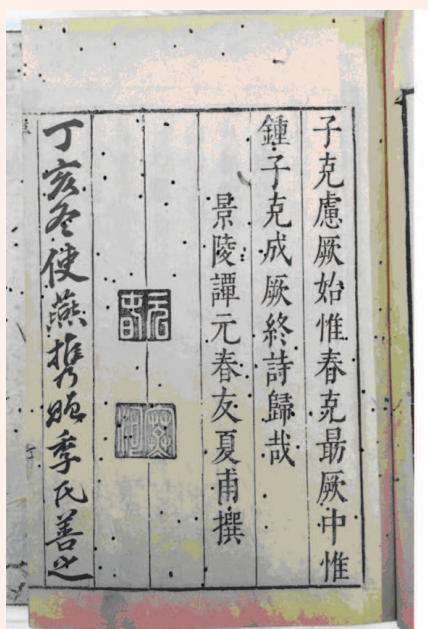 子克慮厥始惟春克最厥中惟
鍾子克成厥終詩歸哉
景陵譚元春友夏甫撰
元春
丁亥冬使燕携季氏善之